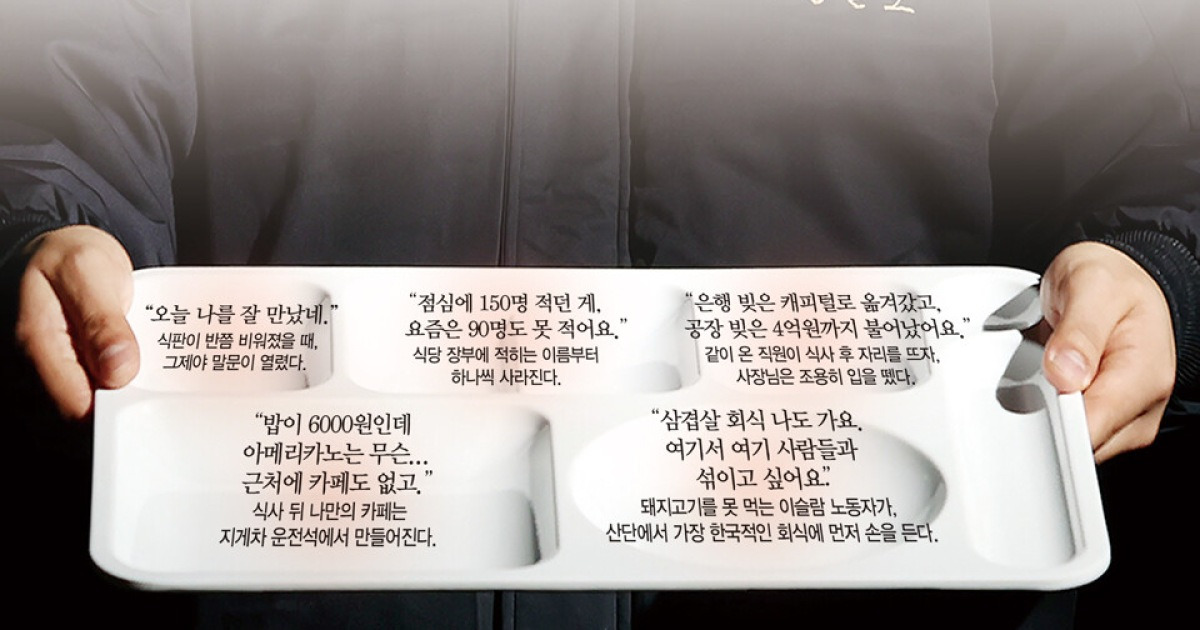 “오늘 나를 잘 만났네.”
식판이 반쯤 비워졌을 때,
그제야 말문이 열렸다.
“점심에 150명 적던 게,
요즘은 90명도 못 적어요.”
식당 장부에 적히는 이름부터
하나씩 사라진다.
“은행 빚은 캐피털로 옮겨갔고,
공장 빚은 4억원까지 불어났어요.”
같이 온 직원이 식사 후 자리를 뜨자,
사장님은 조용히 입을 뗐다.
“밥이 6000원인데
아메리카노는 무슨...
근처에 카페도 없고.”
식사 뒤 나만의 카페는
지게차 운전석에서 만들어진다.
“삼겹살 회식 나도 가요.
여기서 여기 사람들과
섞이고 싶어요.”
돼지고기를 못 먹는 이슬람 노동자가,
산단에서 가장 한국적인 회식에 먼저 손을 든다.